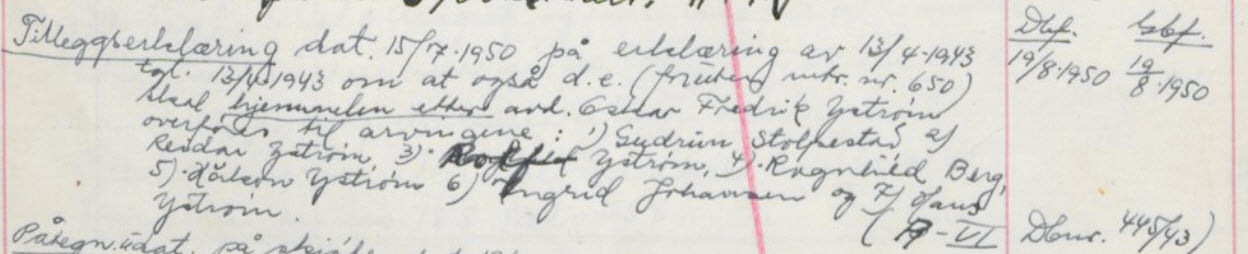 Tilleggserklæring dat. 15/7·1950 på erklæring av 13/4-1943
tgl. 13/4·1943 om at også d.e. (frukten mtr. nr. 650)
skal hjemmelen etter avd. Oskar Fredrik Ystrøm
overføres til arvingene: 1) Gudrun Stolpestad 2)
Reidar Ystrøm, 3). Ystrøm, 4). Ragnhild Berg,
5). Håkon Ystrøm 6) Ingrid Johansen og 7) Hans
Ystrøm.
Dbf. Gbf.
19/8·1950 19/8·1950
(P-VI Dbnr. 445/43)
Påtegn. udat. på